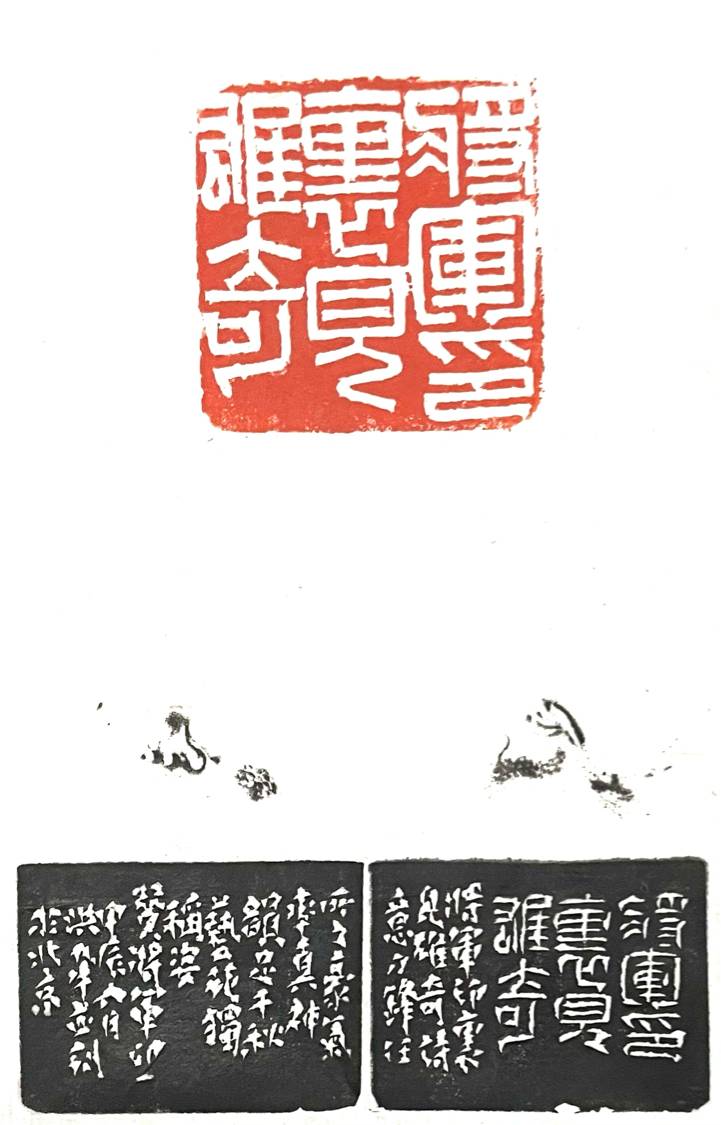 將軍印
裏見
雄奇
將軍印
裏見
雄奇
將軍印裏
見雄奇詩
意刀鋒任
所之豪氣
率真神
韻足千秋
藝苑獨
稱姿
贊將軍印
甲辰月
並刻
於北京